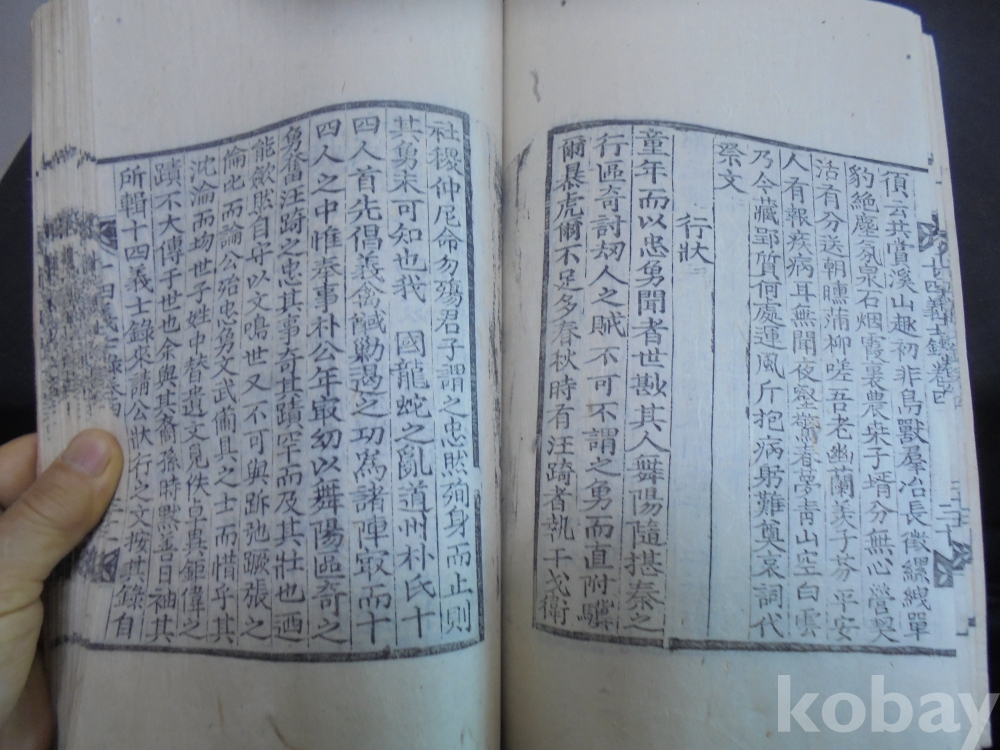 須云共賞溪山趣初非鳥獸羣冶長徵縲絏單
豹絶塵氛泉石烟霞裏農桒子壻分無心營奐
活有分送朝曛蒲柳嗟吾老幽蘭羨子芬平安
人有報疾病耳無聞夜壑驚春夢靑山空白雲
乃今藏郢質何處運風斤抱病躬難奠哀詞代
祭文
行狀
童年而以忠勇聞者世尠其人舞陽隨撍秦之
行區奇討刼人之賊不可不謂之勇而直附驥
爾暴虎爾不足多春秋時有汪踦者執干戈衛
社稷仲尼命勿殤君子謂之忠然殉身而止則
其勇未可知也我 國龍蛇之亂道州朴氏十
四人首先倡義禽馘勦遏之功爲諸陣㝡而十
四人之中惟奉事朴公年㝡幼以舞陽區奇之
勇奮汪踦之忠其事奇其蹟罕而及其壯也迺
能歛然自守以文鳴世又不可與跅弛蹶張之
倫也而論公殆忠勇文武備具之士而惜乎其
沈淪而塲世子姓中替遺文見佚皇異鉅偉之
蹟不大傳于世也余與其裔孫時黙善日袖其
所輯十四義士錄來請公狀行之文按其錄自
十四義士錄卷四